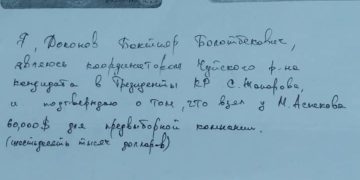 Я, Доконов Бактияр Болотбекович,
являюсь координатором Чуйского р-на
кандидата в Президенты КР С. Жапарова,
и подтверждаю о том, что взял у М. Аспекова
60,000$ для предвыборной компании.
(шестьдесят тысяч долларов)